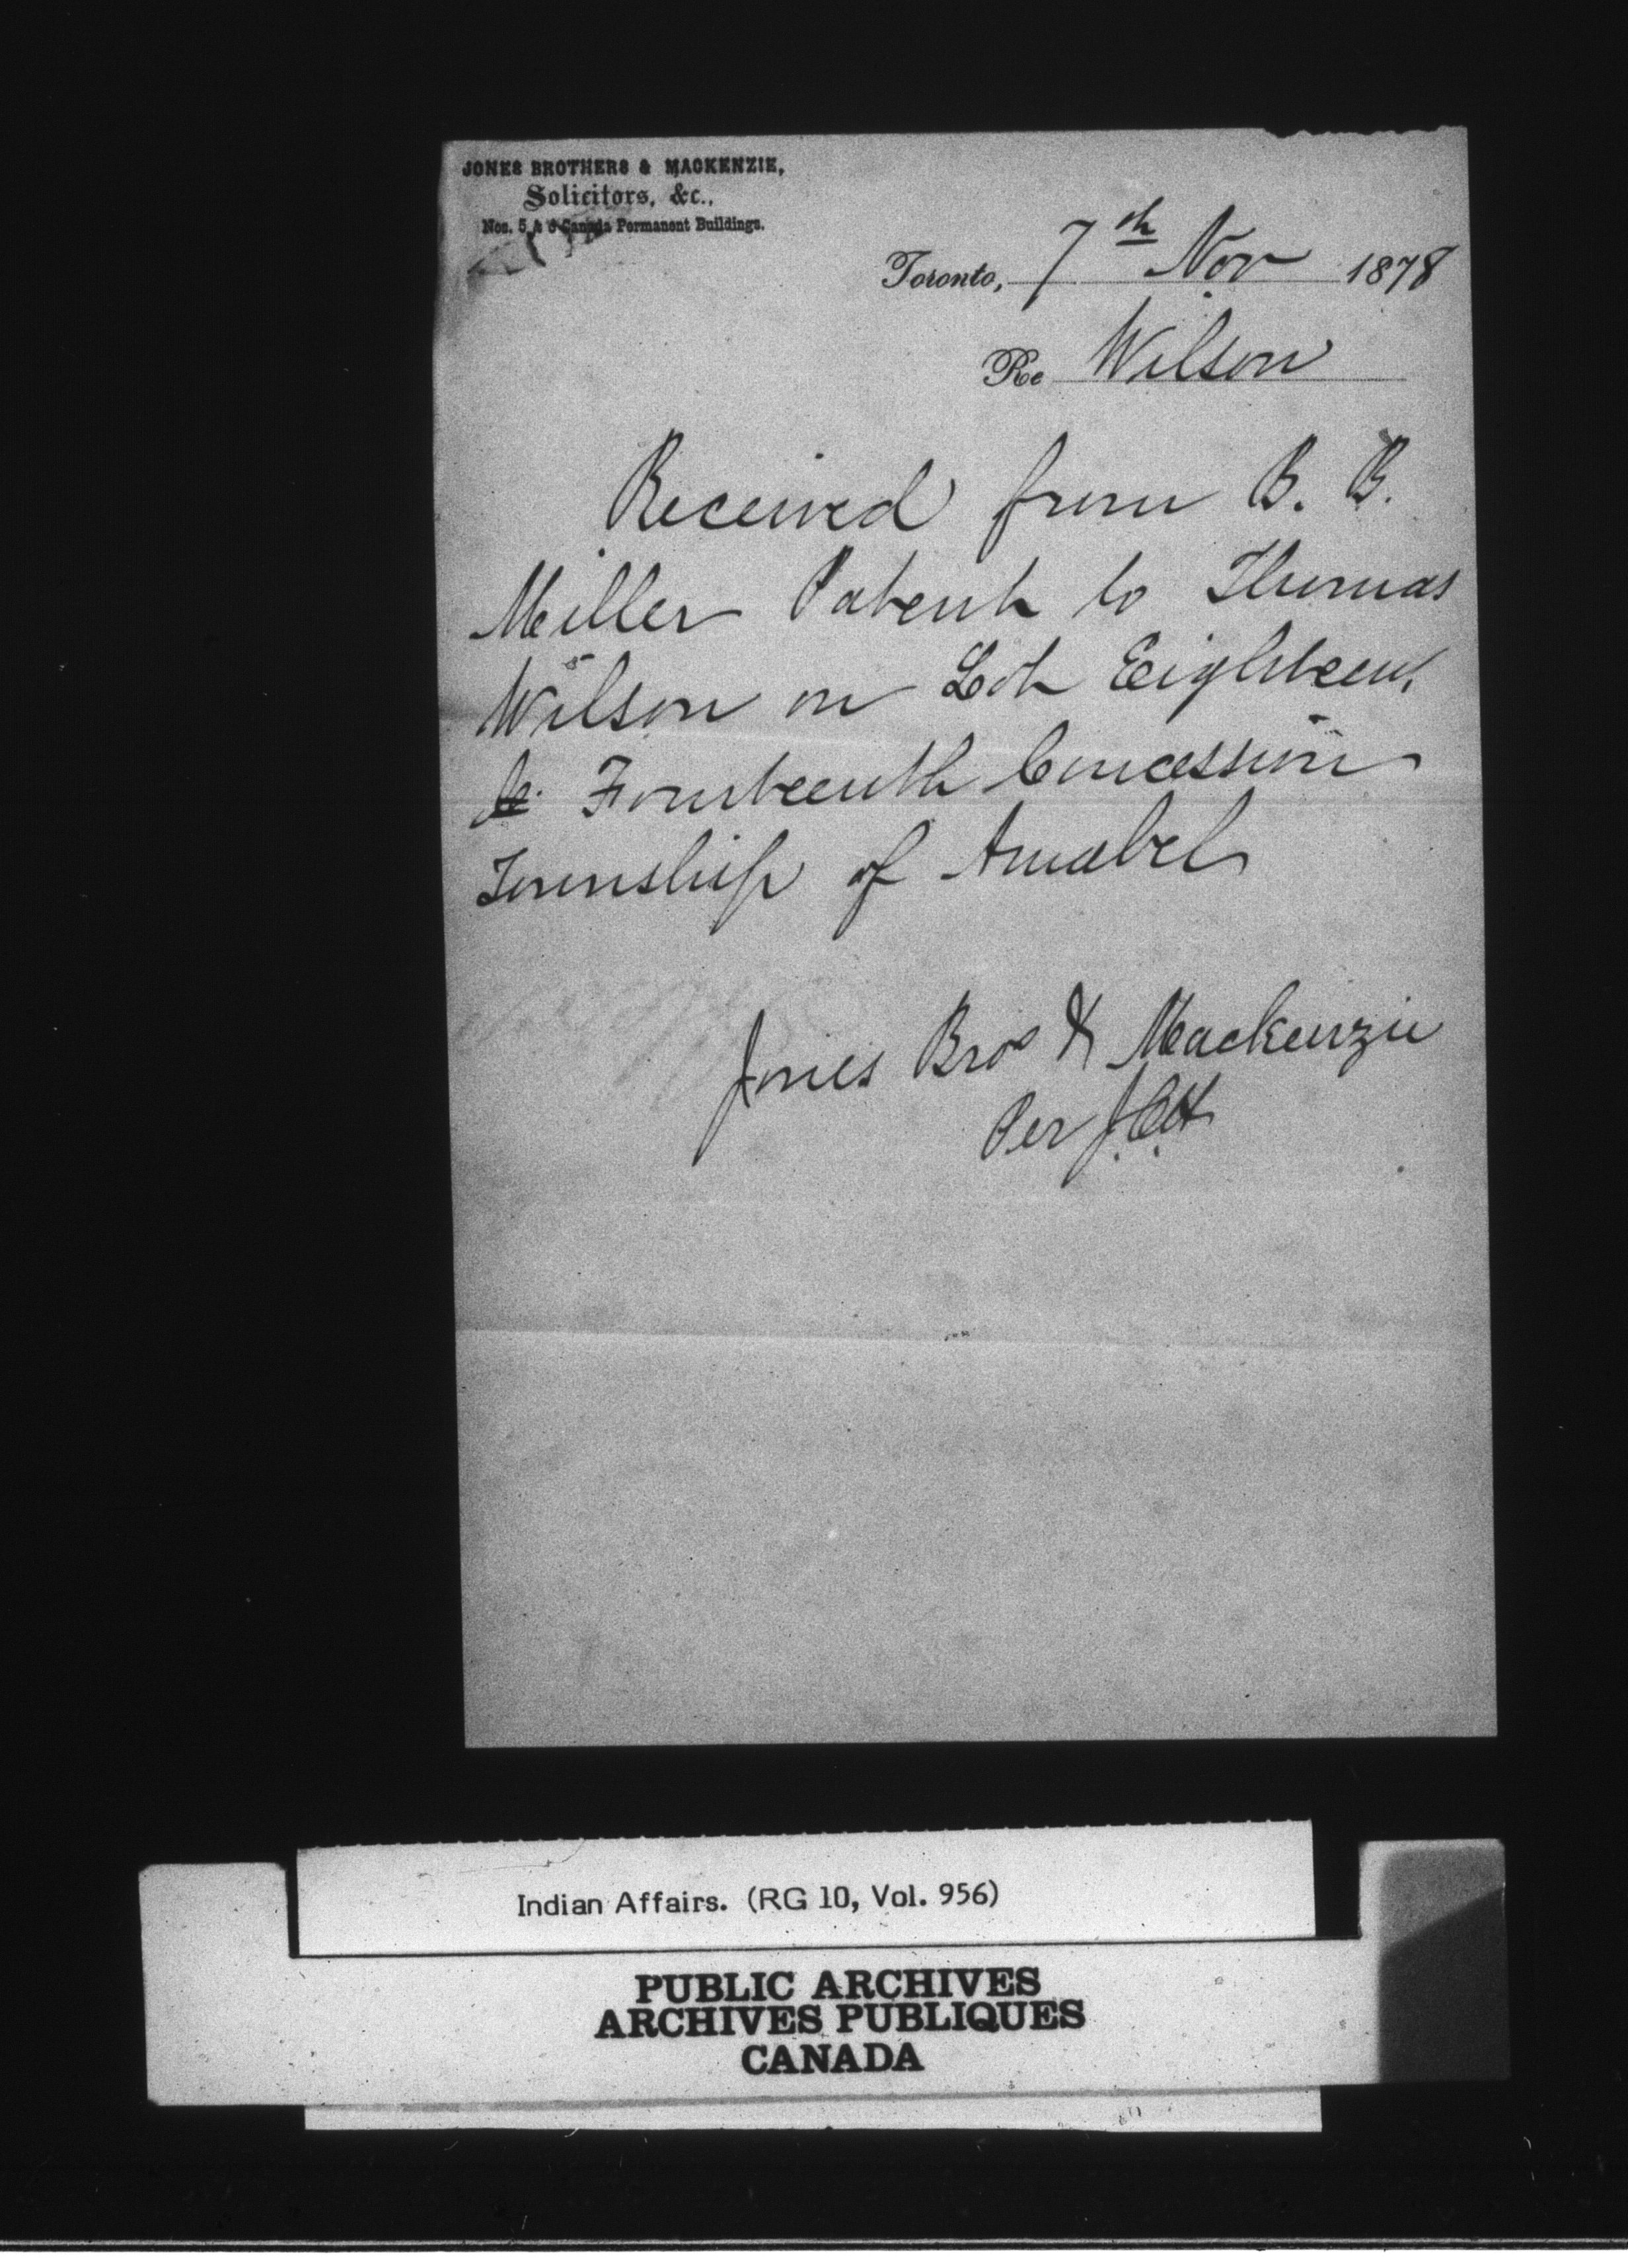 JONES BROTHERS & MACKENZIE,
Solicitors, &c.,
Nos. 5 & 6 Canada Permanent Buildings.
Toronto, 7th Nov 1878
Re Wilson
Received from B. B.
Miller Patent to Thomas
Wilson on Lot Eighteen,
Fourteenth Concession
Township of Amabel
Jones Bros & Mackenzie
Per J.C.H
Indian Affairs. (RG 10, Vol. 956)
PUBLIC ARCHIVES
ARCHIVES PUBLIQUES
CANADA